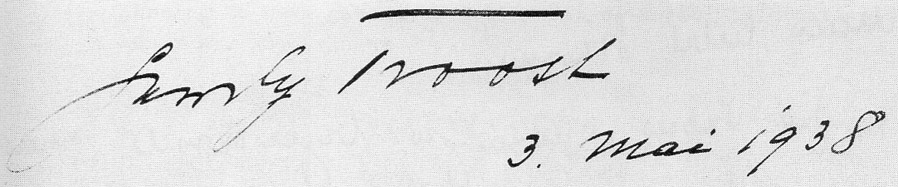 Gerdy Troost
3. Mai 1938